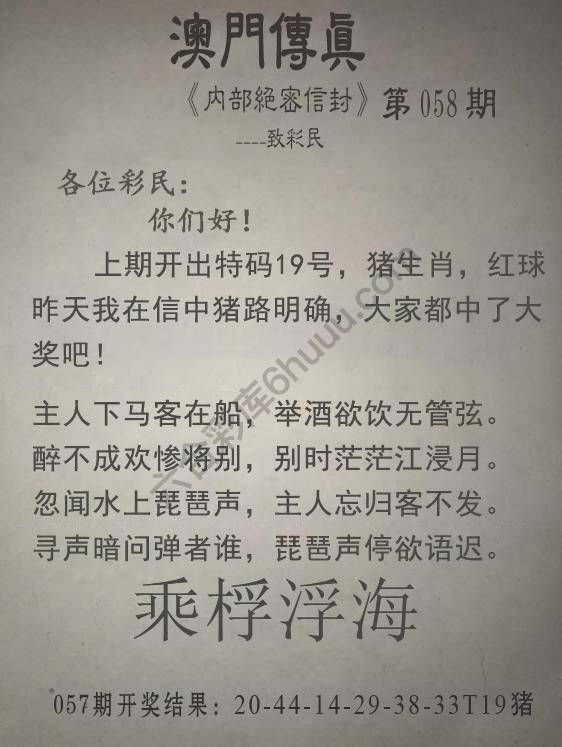 澳門傳眞
《内部絕密信封》第058期
----致彩民
各位彩民：
你们好！
上期开出特码19号，猪生肖，红球
昨天我在信中猪路明确，大家都中了大
奖吧！
主人下马客在船，举酒欲饮无管弦。
醉不成欢惨将别，别时茫茫江浸月。
忽闻水上琵琶声，主人忘归客不发。
寻声暗问弹者谁，琵琶声停欲语迟。
乘桴浮海
057期开奖结果：20-44-14-29-38-33T19猪
六合彩库6huuu.com